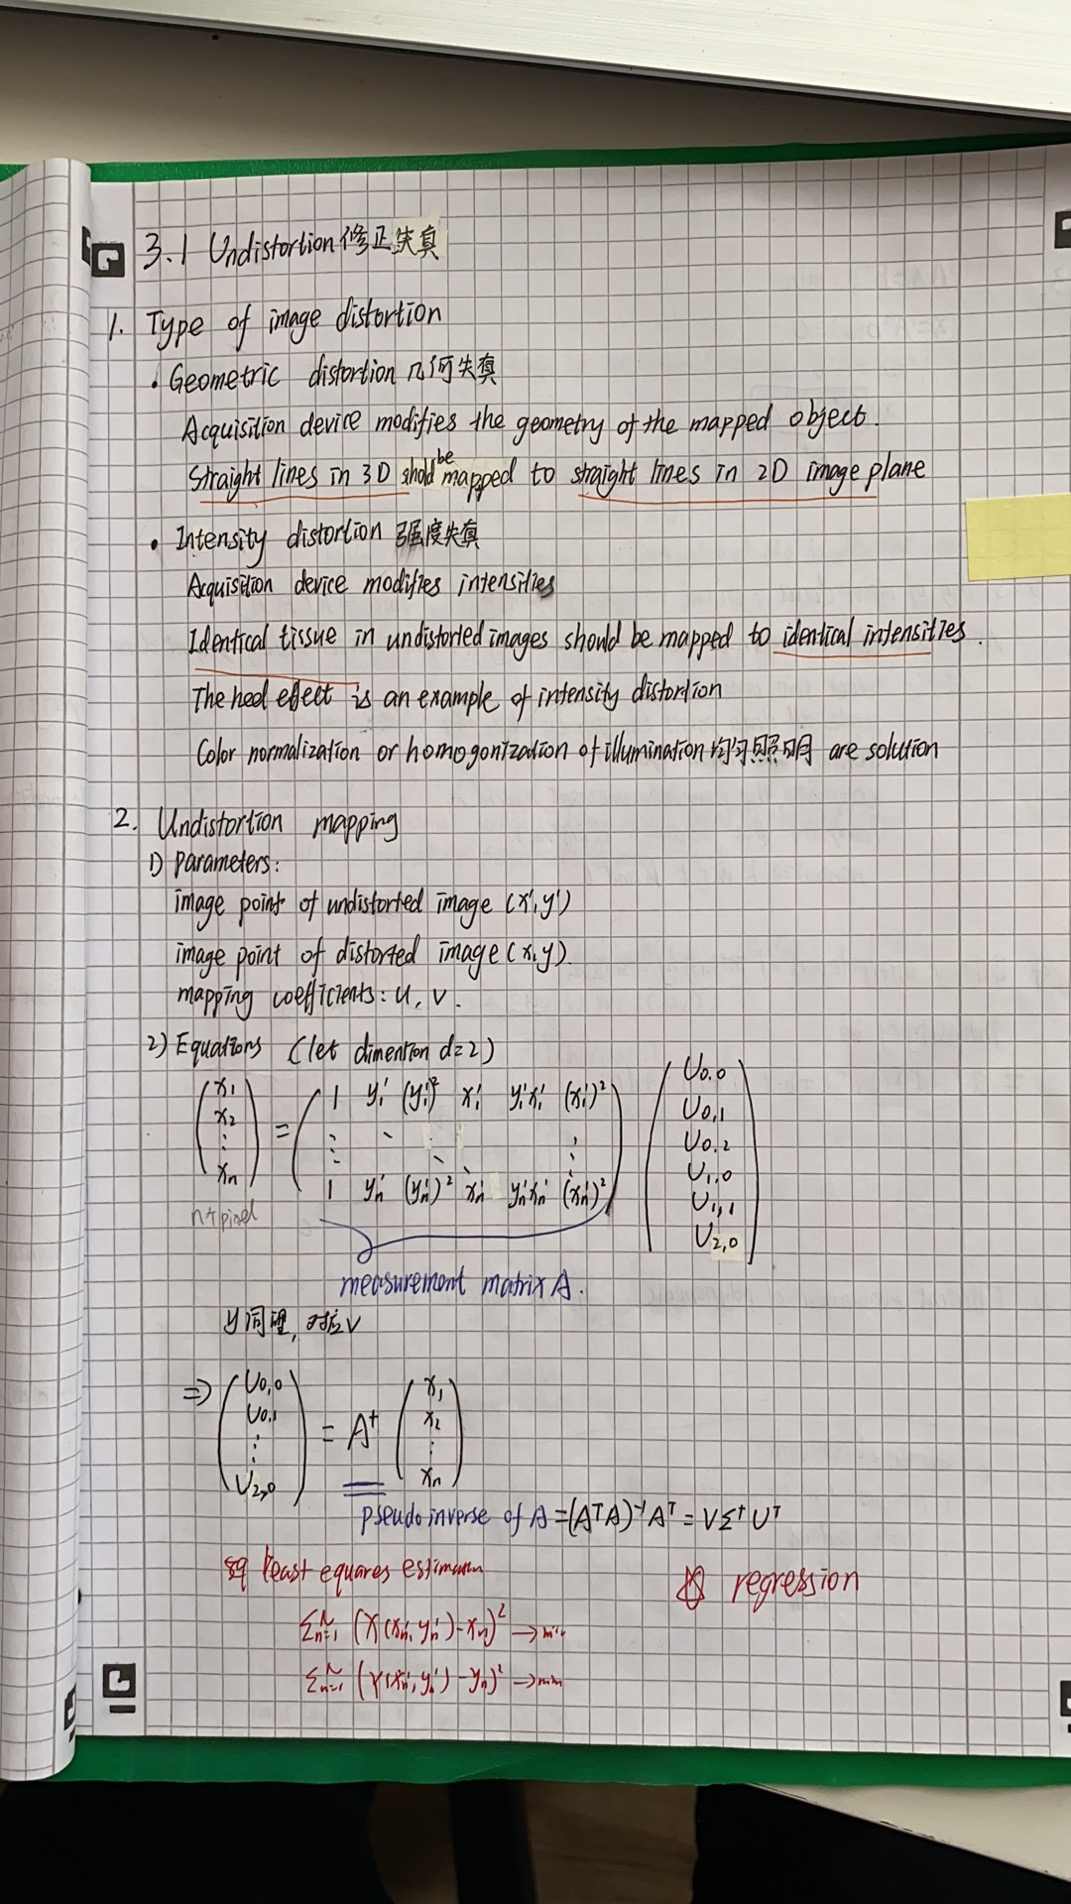 3.1 Undistortion 修正失真
1. Type of image distortion
· Geometric distortion 几何失真
Acquisition device modifies the geometry of the mapped object.
Straight lines in 3D shold be mapped to straight lines in 2D image plane
· Intensity distortion 强度失真
Acquisition device modifies intensities
Identical tissue in undistorted images should be mapped to identical intensities.
The heel effect is an example of intensity distortion
Color normalization or homogonization of illumination 均匀照明 are solution
2. Undistortion mapping
1) Parameters:
image point of undistorted image (x',y')
image point of distorted image (x,y).
mapping coefficients: u, v.
2) Equations (let dimention d=2)
(x₁ x₂ ⋮ xₙ) = (1 y₁' (y₁')² x₁' y₁'x₁' (x₁')² ⋮ 1 yₙ' (yₙ')² xₙ' yₙ'xₙ' (xₙ')²) (U₀,₀ U₀,₁ U₀,₂ U₁,₀ U₁,₁ U₂,₀)
n个pixel
measurement matrix A.
y同理, 对应V
⇒ (U₀,₀ U₀,₁ ⋮ U₂,₀) = A⁺ (x₁ x₂ ⋮ xₙ)
pseudo inverse of A = (AᵀA)⁻¹Aᵀ = VΣ⁺Uᵀ
least equares estimation
☆ regression
Σₙ₌₁ᴺ (X(xₙ', yₙ') - xₙ)² → min
Σₙ₌₁ᴺ (Y(xₙ', yₙ') - yₙ)² → min